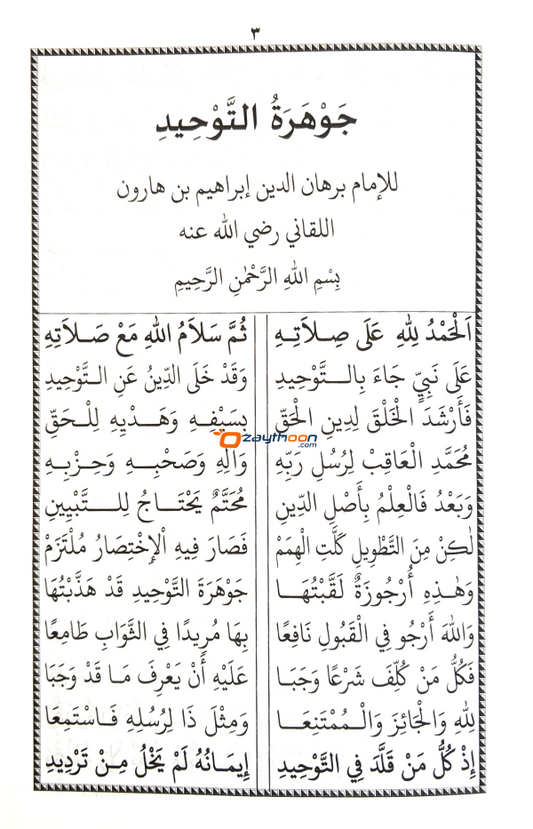 ٣
جَوْهَرَةُ التَّوْحِيدِ
للإمام برهان الدين إبراهيم بن هارون
اللقاني رضي الله عنه
بِسْمِ اللهِ الرَّحْمٰنِ الرَّحِيمِ
اَلْحَمْدُ لِلّٰهِ عَلَى صِلَاتِهِ ثُمَّ سَلَامُ اللهِ مَعْ صَلَاتِهِ
عَلَى نَبِيٍّ جَاءَ بِالتَّوْحِيدِ وَقَدْ خَلَى الدِّينُ عَنِ التَّوْحِيدِ
فَأَرْشَدَ الْخَلْقَ لِدِينِ الْحَقِّ بِسَيْفِهِ وَهَدْيِهِ لِلْحَقِّ
zaythoon.com
مُحَمَّدِ الْعَاقِبْ لِرُسْلِ رَبِّهِ وَآلِهِ وَصَحْبِهِ وَحِزْبِهِ
وَبَعْدُ فَالْعِلْمُ بِأَصْلِ الدِّينِ مُحَتَّمٌ يَحْتَاجُ لِلتَّبْيِينِ
لٰكِنْ مِنَ التَّطْوِيلِ كَلَّتِ الْهِمَمْ فَصَارَ فِيهِ الْاِخْتِصَارُ مُلْتَزَمْ
وَهٰذِهِ أُرْجُوزَةٌ لَقَّبْتُهَا جَوْهَرَةَ التَّوْحِيدِ قَدْ هَذَّبْتُهَا
وَاللهَ أَرْجُو فِي الْقَبُولِ نَافِعًا بِهَا مُرِيدًا فِي الثَّوَابِ طَامِعًا
فَكُلُّ مَنْ كُلِّفَ شَرْعًا وَجَبَا عَلَيْهِ أَنْ يَعْرِفَ مَا قَدْ وَجَبَا
لِلّٰهِ وَالْجَائِزَ وَالْمُمْتَنِعَا وَمِثْلَ ذَا لِرُسْلِهِ فَاسْتَمِعَا
إِذْ كُلُّ مَنْ قَلَّدَ فِي التَّوْحِيدِ إِيمَانُهُ لَمْ يَخْلُ مِنْ تَرْدِيدِ